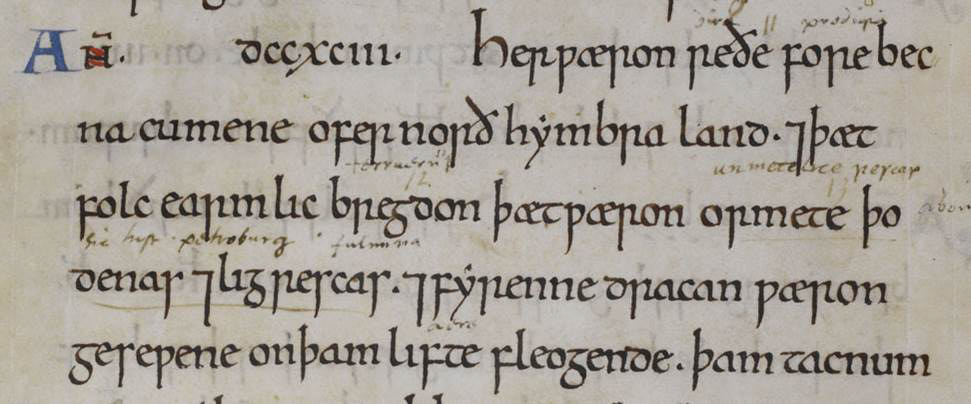 Añ. dccxciii. Her ƿæron reðe forebec
na cumene ofer norð hẏmbra land. ⁊ þæt
folc earmlic bregdon þæt ƿæron ormete þo
denas ⁊ ligrescas. ⁊ fẏrenne dracan ƿæron
geseƿene on þam lifte fleogende. þam tacnum